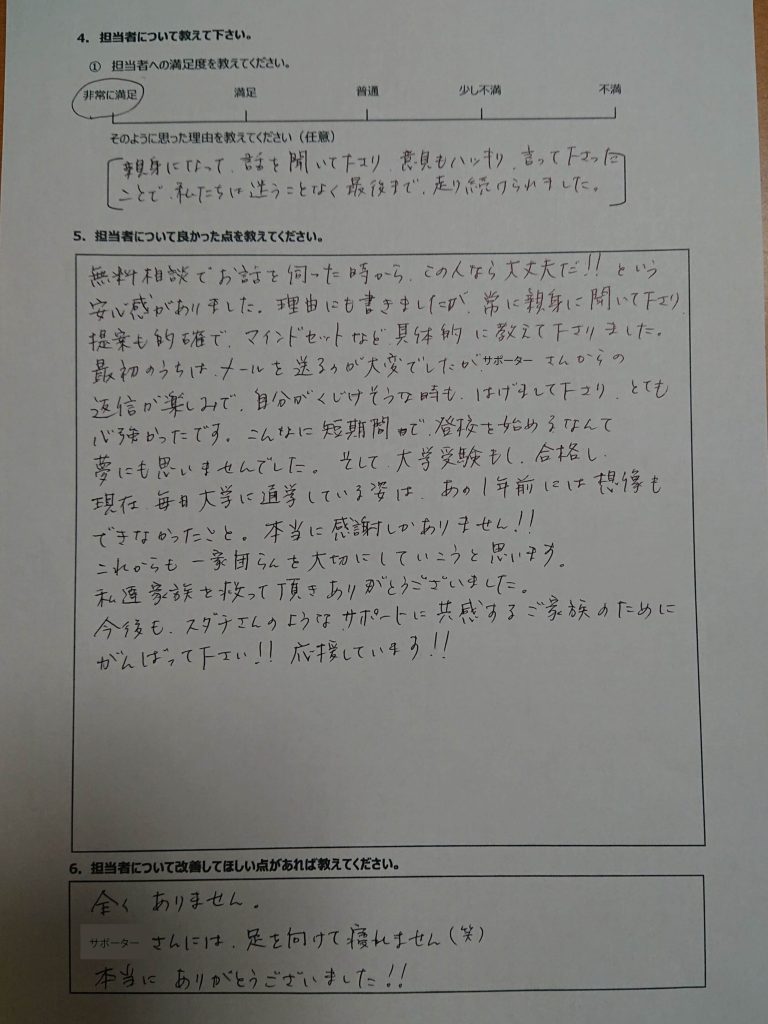 4. 担当者について教えて下さい。
① 担当者への満足度を教えてください。
非常に満足 満足 普通 少し不満 不満
そのように思った理由を教えてください（任意）
親身になって、話を聞いて下さり、意見もハッキリ、言って下さった
ことで、私たちは迷うことなく最後まで、走り続けられました。
5. 担当者について良かった点を教えてください。
無料相談でお話を伺った時から、この人なら大丈夫だ!! という
安心感がありました。理由にも書きましたが、常に親身に聞いて下さり、
提案も的確で、マインドセットなど、具体的に教えて下さりました。
最初のうちは、メールを送るのが大変でしたが サポーター さんからの
返信が楽しみで、自分がくじけそうな時も、はげまして下さり、とても
心強かったです。こんなに短期間で、登校を始めるなんて
夢にも思いませんでした。そして、大学受験もし、合格し、
現在、毎日大学に通学している姿は、あの1年前には想像も
できなかったこと。本当に感謝しかありません!!
これからも一家団らんを大切にしていこうと思います。
私達家族を救って頂きありがとうございました。
今後も、スダチさんのようなサポートに共感するご家族のために
がんばって下さい!! 応援しています!!
6. 担当者について改善してほしい点があれば教えてください。
全くありません。
サポーター さんには、足を向けて寝れません（笑）
本当にありがとうございました!!